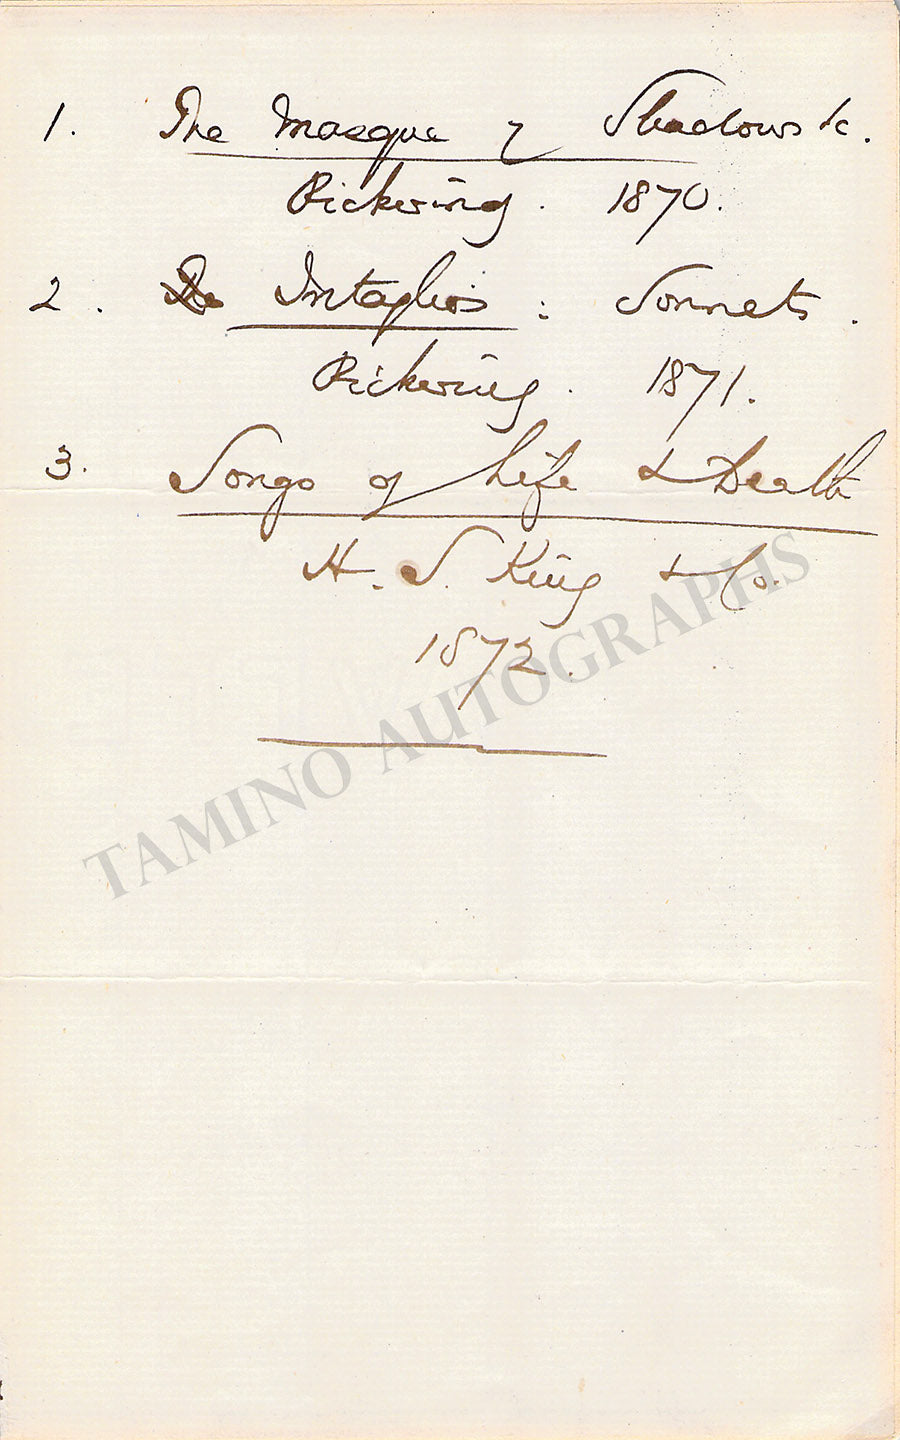 1. The Masque of Shadows &c.
Pickering. 1870.
2. The Intaglios: Sonnets.
Pickering. 1871.
3. Songs of Life & Death
H. S. King & Co.
1872.
TAMINO AUTOGRAPHS